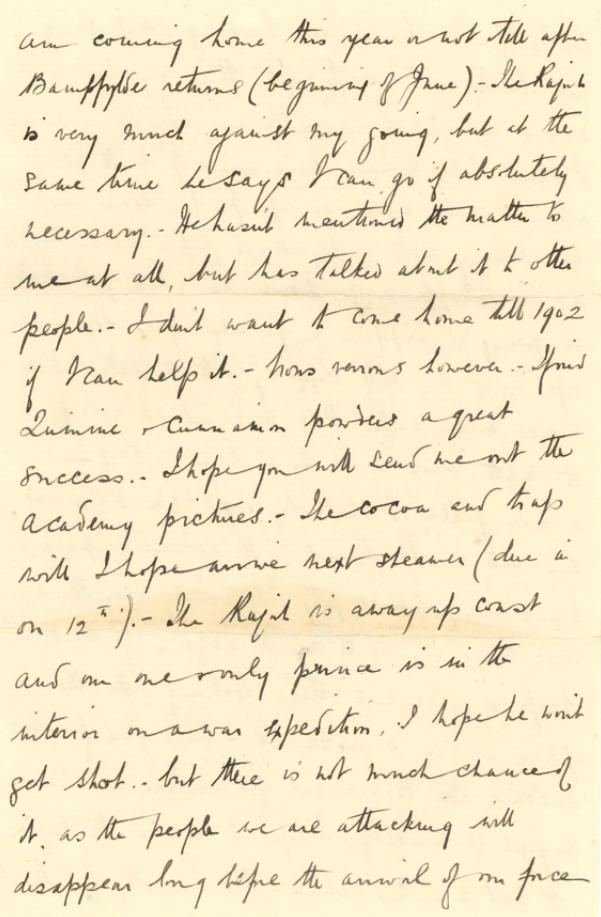 am coming home this year or not till after
Bampfylde returns (beginning of June).- The Rajah
is very much against my going, but at the
same time he says I can go if absolutely
necessary.- He hasn't mentioned the matter to
me at all, but has talked about it to other
people.- I don't want to come home till 1902
if I can help it.- nous verrons however.- I find
Quinine & Cinnamon powders a great
success.- I hope you will send me out the
Academy pictures.- The cocoa and traps
will I hope arrive next steamer (due in
on 12th).- The Rajah is away up coast
and our one & only prince is in the
interior on a war expedition. I hope he won't
get shot.- but there is not much chance of
it, as the people we are attacking will
disappear long before the arrival of our force